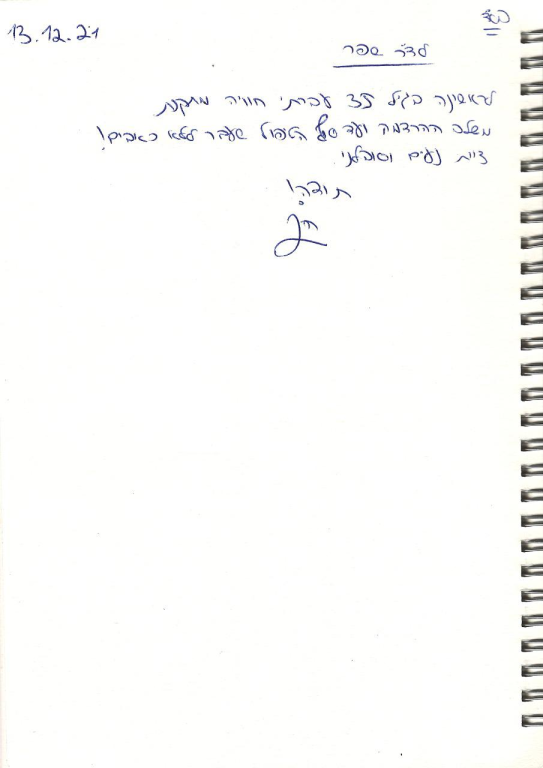 בס"ד
13.12.21
לד"ר שפר
לראשונה בגיל 35 עברתי חוויה מתקנת
משלב ההרדמה ועד סוף הטיפול שעבר ללא כאבים!
היית נעים וסובלני
תודה!